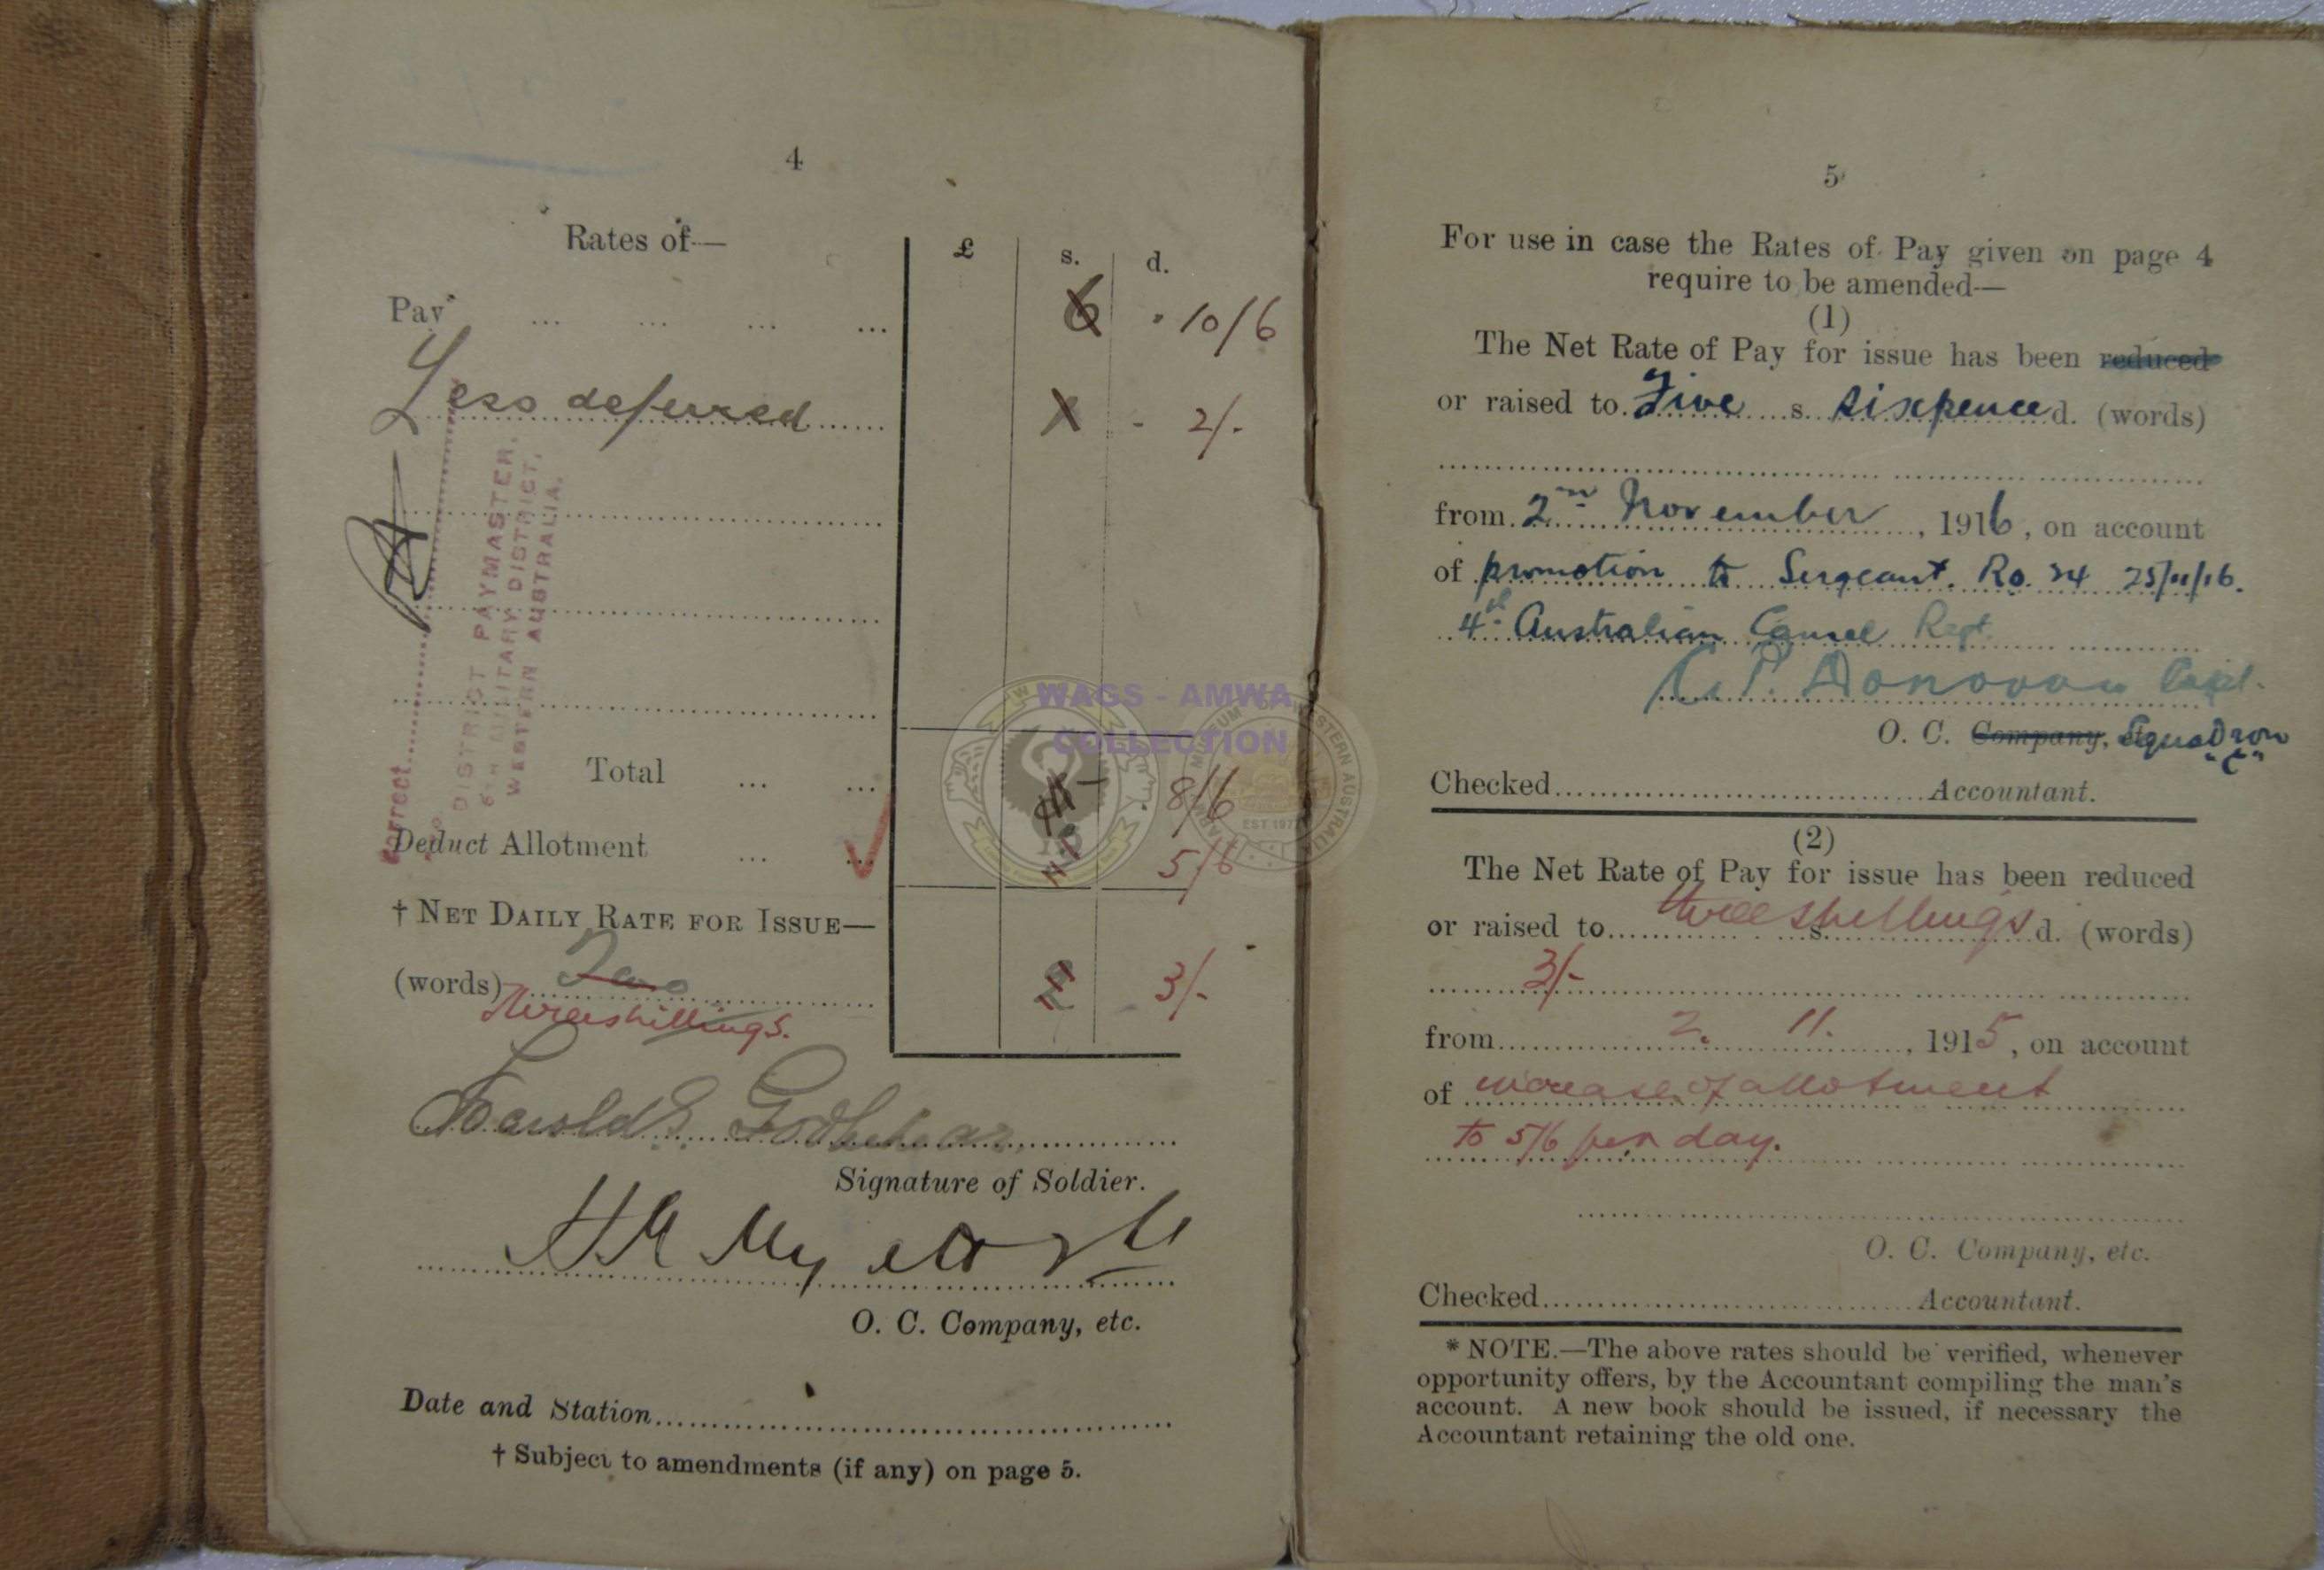 4
Rates of—
£ s. d.
Pay ... ... ... ... 6 10/6
Less deferred 1 - 2/-
Correct
DISTRICT PAYMASTER,
MILITARY DISTRICT,
WESTERN AUSTRALIA.
Total ... ... 8/6
Deduct Allotment ... ... 5/6
† NET DAILY RATE FOR ISSUE—
(words) Two 3/-
Three shillings.
Harold E.
Signature of Soldier.
O. C. Company, etc.
Date and Station
† Subject to amendments (if any) on page 5.
5
For use in case the Rates of Pay given on page 4
require to be amended—
(1)
The Net Rate of Pay for issue has been reduced
or raised to Five s. sixpence d. (words)
from 2nd November, 1916, on account
of promotion to Sergeant. Ro. 24 25/11/16.
4th Australian Camel Regt
Donovan Capt.
O. C. Company, etc. Squadron
"C"
Checked Accountant.
(2)
The Net Rate of Pay for issue has been reduced
or raised to three shillings s. d. (words)
3/-
from 2. 11. , 1915, on account
of increase of allotment
to 5/6 per day.
O. C. Company, etc.
Checked Accountant.
* NOTE.—The above rates should be verified, whenever
opportunity offers, by the Accountant compiling the man's
account. A new book should be issued, if necessary the
Accountant retaining the old one.
WAGS - AMWA
COLLECTION